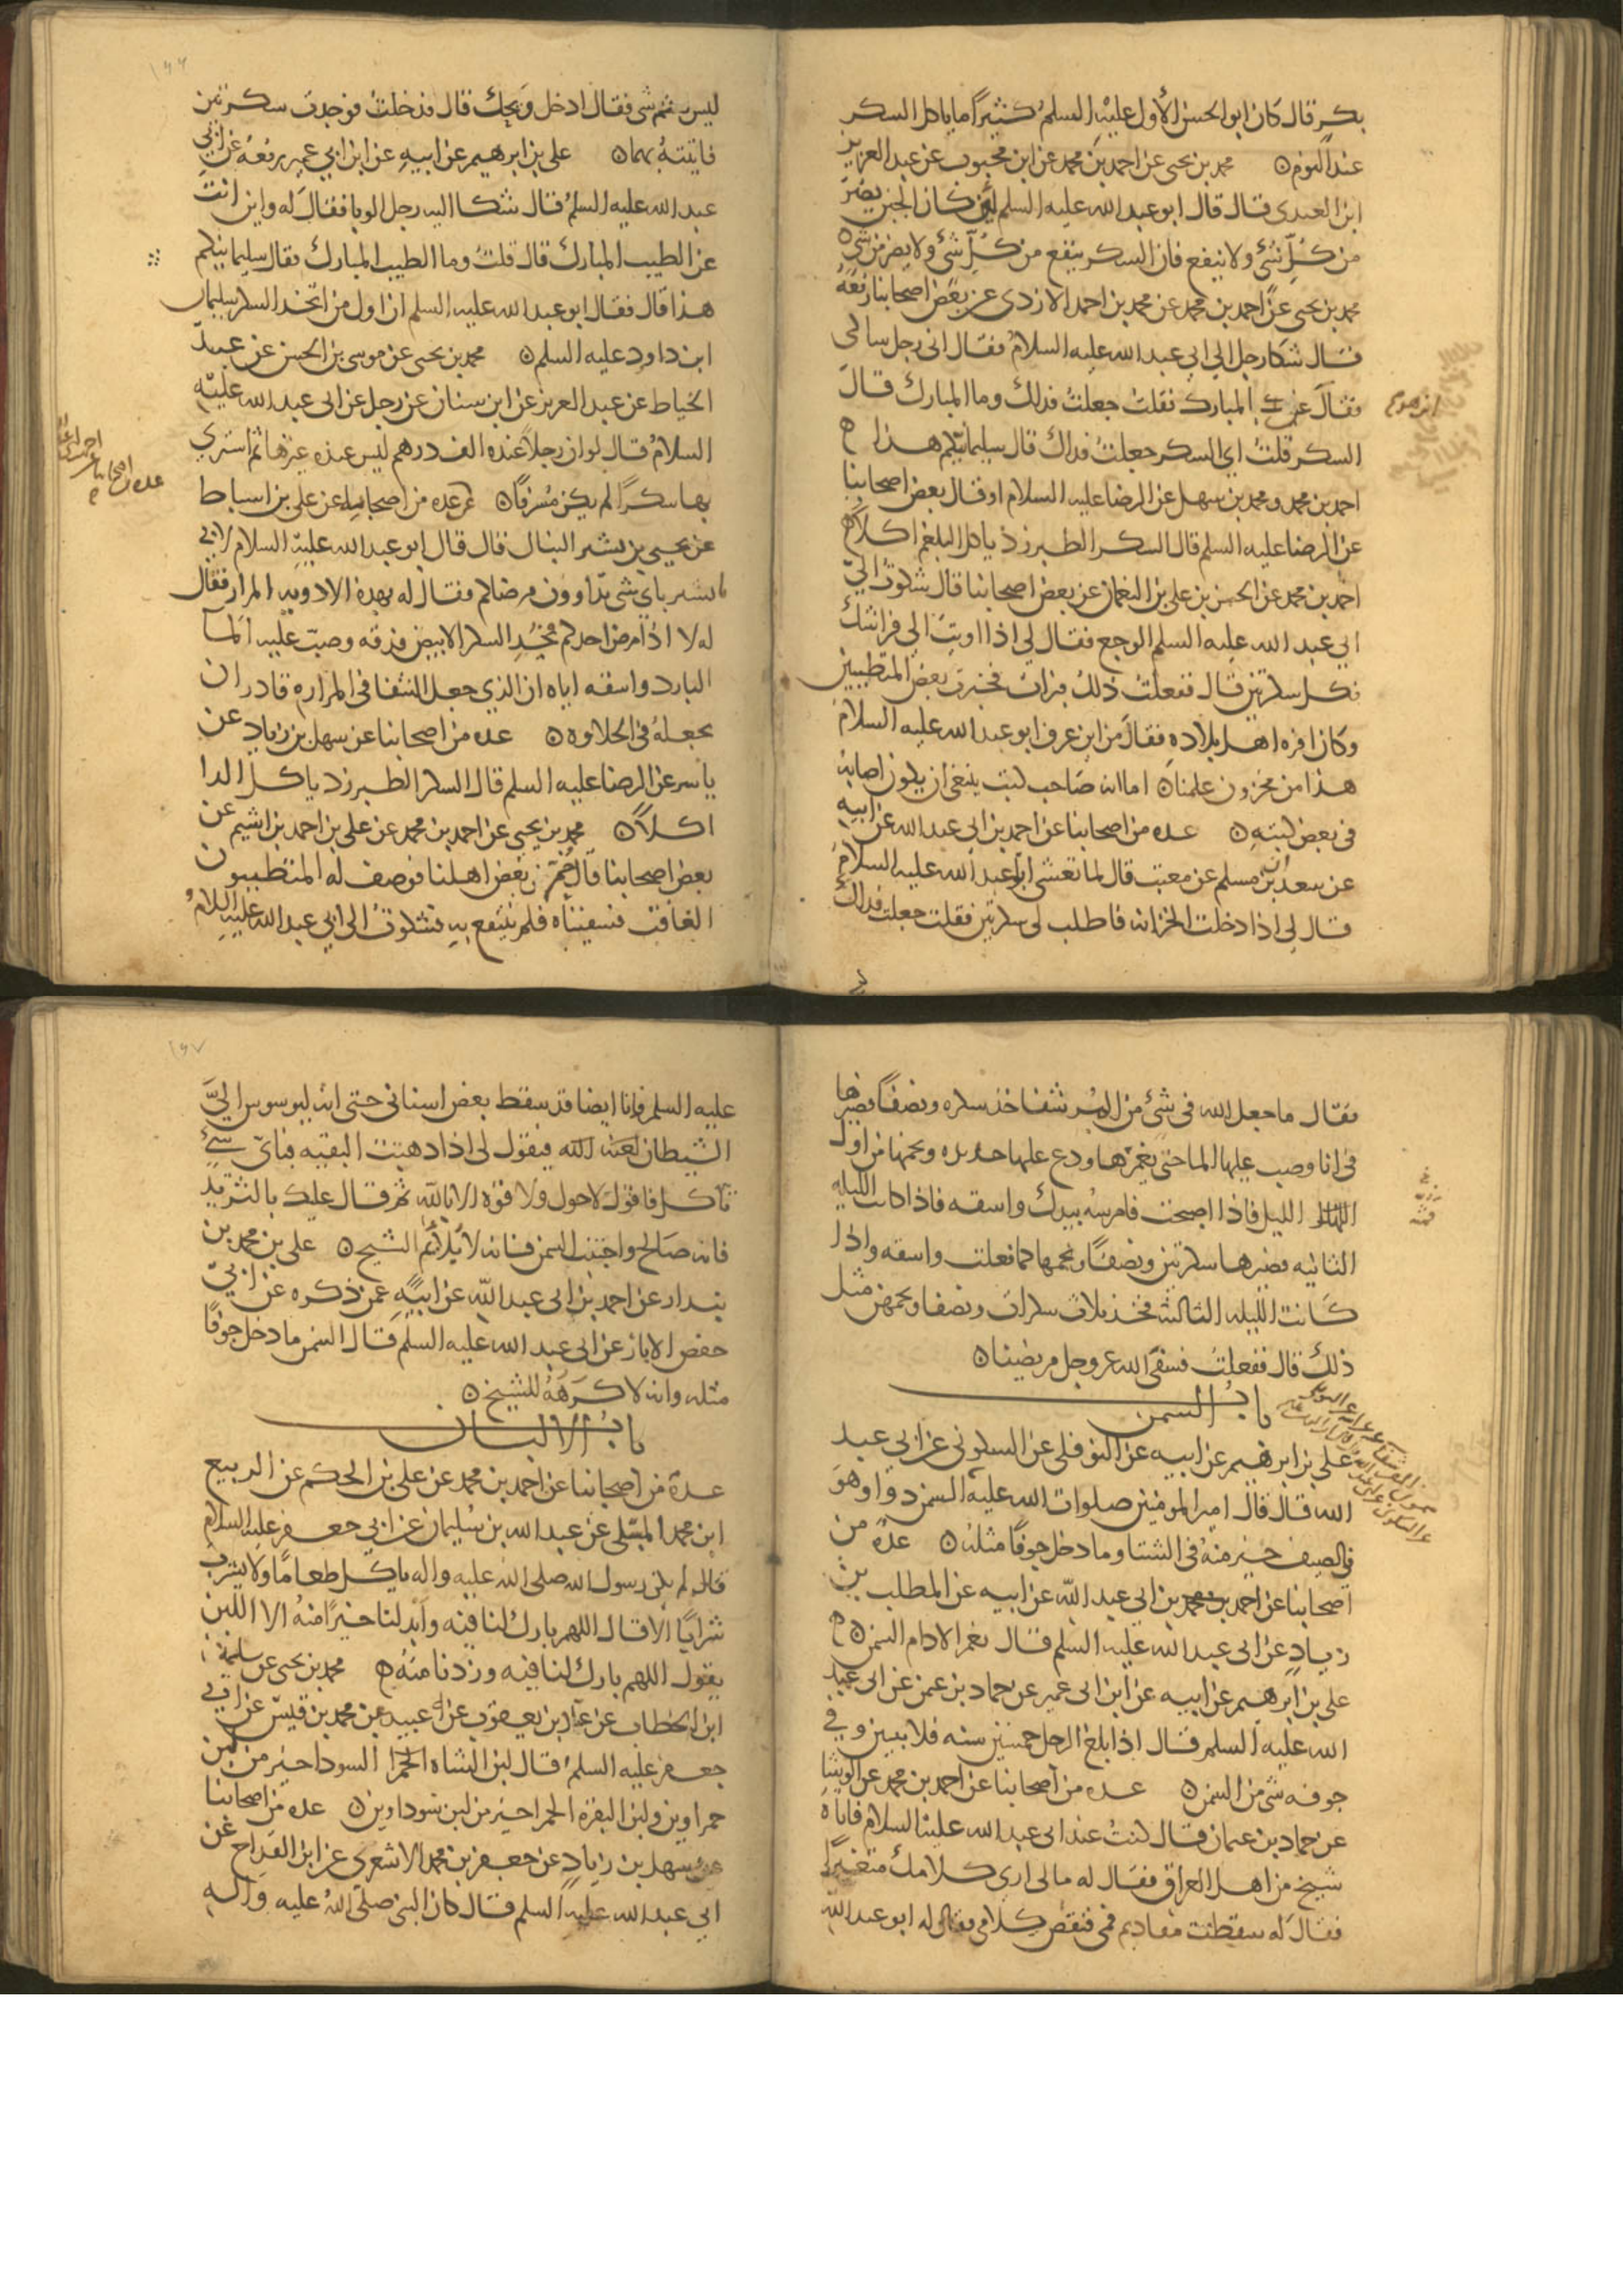 بكر قال كان ابو الحسن الأول عليه السلم كثيرا ما ياكل السكر
عند النوم ۞ محمد بن يحيى عن احمد بن محمد عن ابن محبوب عن عبد العزيز
ابن العبدي قال قال ابو عبد الله عليه السلم لئن كان الجبن يضر
من كل شئ ولا ينفع فان السكر ينفع من كل شئ ولا يضر من شئ ۞
محمد بن يحيى عن احمد بن محمد عن محمد بن احمد الازدي عن بعض اصحابنا رفعه
قال شكا رجل الي ابي عبد الله عليه السلام فقال اني رجل شاكى
فقال اين هو عن المبارك فقلت جعلت فداك وما المبارك قال
السكر قلت اي السكر جعلت فداك قال سليمانيكم هذا ه
احمد بن محمد ومحمد بن سهل عن الرضا عليه السلام او قال بعض اصحابنا
عن الرضا عليه السلم قال السكر الطبرزذ ياكل البلغم اكلا ه
احمد بن محمد عن الحسن بن علي بن النعمان عن بعض اصحابنا قال شكوت الي
ابي عبد الله عليه السلم الوجع فقال لي اذا اويت الي فراشك
فكل سكرتين قال ففعلت ذلك فبرات فخبرت بعض المتطببين
وكان افره اهل بلاده فقال من اين عرف ابو عبد الله عليه السلام
هذا من مخزون علمنا ۞ اما انه صاحب كتب ينبغي ان يكون اصابه
في بعض كتبه ۞ عده من اصحابنا عن احمد بن ابي عبد الله عن ابيه
عن سعدان بن مسلم عن معتب قال لما تعشى ابو عبد الله عليه السلام
قال لي اذا دخلت الخزانه فاطلب لي سكرتين فقلت جعلت فداك
ليس ثم شى فقال ادخل ويحك قال فدخلت فوجدت سكرتين
فاتيته بهما ۞ علي بن ابرهيم عن ابيه عن ابن ابي عمير رفعه عن ابي
عبد الله عليه السلم قال شكا اليه رجل الوبا فقال له واين انت
عن الطيب المبارك قال قلت وما الطيب المبارك فقال سليمانيكم
هذا قال فقال ابو عبد الله عليه السلم ان اول من اتخذ السكر سليمان
ابن داود عليه السلم ۞ محمد بن يحيى عن موسى بن الحسن عن عبيد
الخياط عن عبد العزيز عن ابن سنان عن رجل عن ابي عبد الله عليه
السلام قال لو ان رجلا عنده الف درهم ليس عنده غيرها ثم اشترى
بها سكرا لم يكن مسرفا ۞ عده من اصحابنا عن علي بن اسباط
عن يحيى بن بشير النبال قال قال ابو عبد الله عليه السلام لابي
يا بشير باي شى تداوون مرضاكم فقال له بهذه الادويه المرار فقال
له لا اذا مرض احدكم فخذ السكر الابيض فدقه وصب عليه الما
البارد واسقه اياه ان الذي جعل الشفا في المراره قادر ان
يجعله في الحلاوه ۞ عده من اصحابنا عن سهل بن زياد عن
ياسر عن الرضا عليه السلم قال السكر الطبرزد ياكل الدا
اكلا ۞ محمد بن يحيى عن احمد بن محمد عن علي بن احمد بن اشيم عن
بعض اصحابنا قال حم بعض اهلنا فوصف له المتطببون
الغافث فسقيناه فلم ينتفع به فشكوت الى ابي عبد الله عليه السلام
فقال ما جعل الله في شئ من المر شفا خذ سكره ونصفا فصيرها
في انا وصب عليها الما حتى يغمرها ودع عليها حديده ونجمها من اول
الليل فاذا اصبحت فامرسها بيدك واسقه فاذا كانت الليله
الثانيه فصيرها سكرتين ونصفا ونجمها كما فعلت واسقه واذا
كانت الليله الثالثه فخذ ثلاث سكرات ونصفا ونجمهن مثل
ذلك قال ففعلت فشفى الله عز وجل مريضنا ۞
باب السمن
علي بن ابرهيم عن ابيه عن النوفلي عن السكوني عن ابي عبد
الله قال قال امير المومنين صلوات الله عليه السمن دوا وهو
في الصيف خير منه في الشتا وما دخل جوفا مثله ۞ عدة من
اصحابنا عن احمد بن محمد بن ابي عبد الله عن ابيه عن المطلب بن
زياد عن ابي عبد الله عليه السلم قال نعم الادام السمن ۞ ه
علي بن ابرهيم عن ابيه عن ابن ابي عمير عن حماد بن عثمن عن ابي عبد
الله عليه السلم قال اذا بلغ الرجل خمسين سنه فلا يبيتن وفي
جوفه شى من السمن ۞ عده من اصحابنا عن احمد بن محمد عن الوشا
عن حماد بن عثمان قال كنت عند ابي عبد الله عليه السلام فاتاه
شيخ من اهل العراق فقال له مالى ارى كلامك متغيرا
فقال له سقطت مقاديم فمي فنقص كلامي فقال له ابو عبد الله
عليه السلم وانا ايضا قد سقط بعض اسناني حتى انه ليوسوس الي
الشيطان لعنه الله فيقول لي اذا ذهبت البقيه فباي شئ
تاكل فاقول لا حول ولا قوه الا بالله ثم قال عليك بالثريد
فانه صالح واجتنب السمن فانه لا يلائم الشيخ ۞ علي بن محمد بن
بندار عن احمد بن ابي عبد الله عن ابيه عمن ذكره عن ابي
حفص الابار عن ابي عبد الله عليه السلم قال السمن ما دخل جوفا
مثله وانه لاكرهه للشيخ ۞
باب الالبان
عدة من اصحابنا عن احمد بن محمد عن علي بن الحكم عن الربيع
ابن محمد المسلي عن عبد الله بن سليمان عن ابي جعفر عليه السلام
قال لم يكن رسول الله صلى الله عليه واله ياكل طعاما ولا يشرب
شرابا الا قال اللهم بارك لنا فيه وابدلنا خيرا منه الا اللبن
يقول اللهم بارك لنا فيه وزدنا منه ه محمد بن يحيى عن سلمة
ابن الخطاب عن عباد بن يعقوب عن عبيد عن محمد بن قيس عن ابي
جعفر عليه السلم قال لبن الشاه السودا خير من لبن
حمراوين ولبن البقرة الحمرا خير من لبن سوداوين ۞ عده من اصحابنا
عن سهل بن زياد عن جعفر بن محمد الاشعري عن ابن القداح عن
ابي عبد الله عليه السلم قال كان النبي صلى الله عليه واله